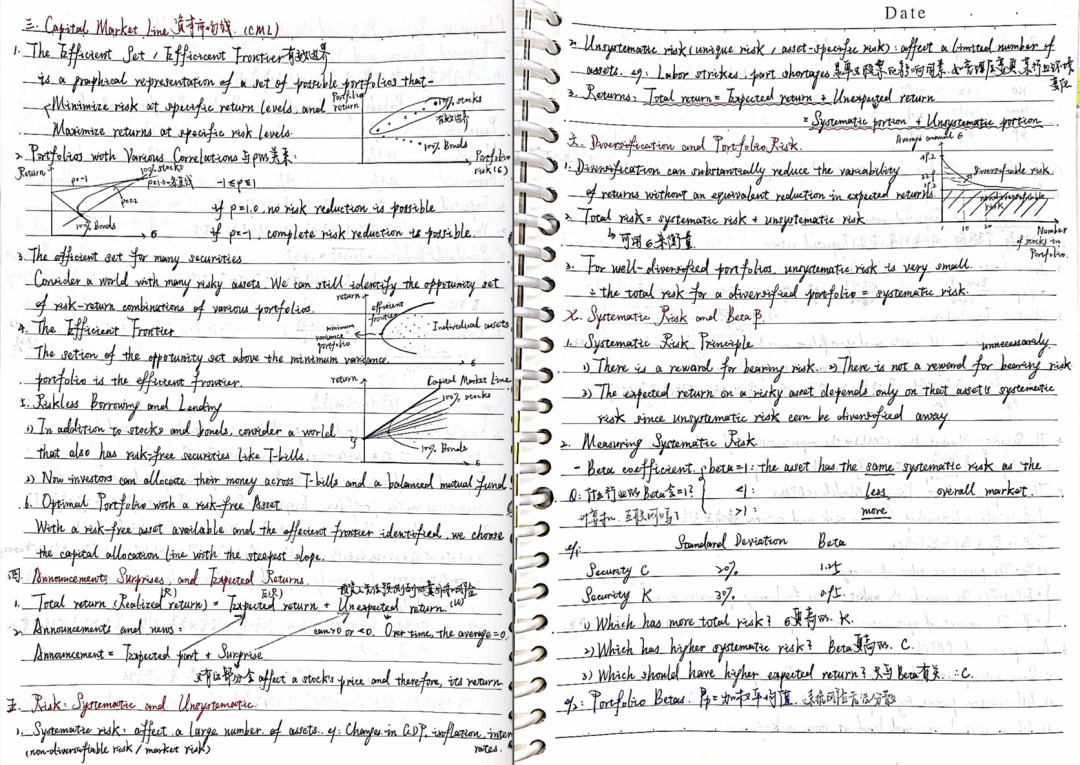 三. Capital Market Line 资本市场线 (CML)
1. The Efficient Set / Efficient Frontier 有效边界
is a graphical representation of a set of possible portfolios that-
Minimize risk at specific return levels, and
Maximize returns at specific risk levels.
Portfolio return
100% stocks
有效边界
100% Bonds
Portfolio risk(σ)
2. Portfolios with Various Correlations 与ρ的关系:
Return
ρ=-1
100% stocks
ρ=0.2
100% Bonds
σ
-1≤ρ≤1
if ρ=1.0, no risk reduction is possible
if ρ=-1, complete risk reduction is possible
3. The efficient set for many securities
Consider a world with many risky assets. We can still identify the opportunity set
of risk-return combinations of various portfolios.
return
efficient frontier
minimum variance portfolio
Individual assets
σ
4. The Efficient Frontier
The setion of the opportunity set above the minimum variance
portfolio is the efficient frontier.
return
Capital Market Line
100% stocks
rf
100% Bonds
σ
5. Riskless Borrowing and Lending
1) In addition to stocks and bonds, consider a world
that also has risk-free securities like T-bills.
2) Now investors can allocate their money across T-bills and a balanced mutual fund
6. Optimal Portfolio with a risk-free Asset
With a risk-free asset available and the effecient frontier identified, we choose
the capital allocation line with the steepest slope.
四. Announcements, Surprises, and Expected Returns.
1. Total return (Realized return) = Expected return + Unexpected return. (U)
(R)
E(R)
can >0 or <0. Over time, the average = 0.
2. Announcements and news:
Announcement = Expected part + Surprise
只有这部分会 affect a stock's price and therefore, its return
五. Risk: Systematic and Unsystematic.
1. Systematic risk: affect a large number of assets. eg: Changes in GDP, inflation, inter
(non-diversifiable risk / market risk)
rates.
Date
2. Unsystematic risk (unique risk, asset-specific risk): affect a limited number of
assets. eg: Labor strikes, part shortages
3. Returns: Total return = Expected return + Unexpected return
= Systematic portion + Unsystematic portion
六. Diversification and Portfolio Risk.
1. Diversification can substantially reduce the variability
of returns without an equivalent reduction in expected returns.
2. Total risk = systematic risk + unsystematic risk
↳ 可用σ来衡量
Average annual σ
diversifiable risk
nondiversifiable risk
1 10 20
Number of stocks in Portfolio.
3. For well-diversified portfolios, unsystematic risk is very small.
∴ the total risk for a diversified portfolio = systematic risk.
七. Systematic Risk and Beta β
1. Systematic Risk Principle
1) There is a reward for bearing risk. 2) There is not a reward for bearing risk
unnecessarily.
3) The expected return on a risky asset depends only on that asset's systematic
risk since unsystematic risk can be diversified away.
2. Measuring Systematic Risk
- Beta coefficient. beta=1: the asset has the same systematic risk as the
<1: less overall market.
>1: more
eg1:
Standard Deviation Beta
Security C 20% 1.25
Security K 30% 0.95
1) Which has more total risk? σ更高的. K.
2) Which has higher systematic risk? Beta更高的. C.
3) Which should have higher expected return? 只与Beta有关. ∴C.
eg2: Portfolio Betas. βp = 加权平均值. 系统风险无法分散